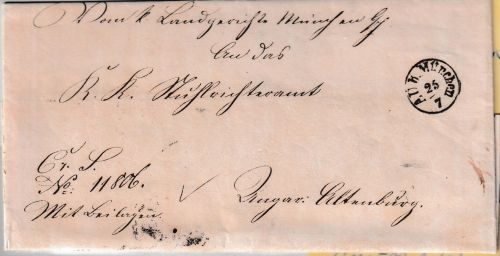 Vom k Landgerichte München
An das
K. K. Stuhlrichteramt
AU b. München
25
7
No: 11806.
Mit Beilagen.
Ungar: Altenburg.